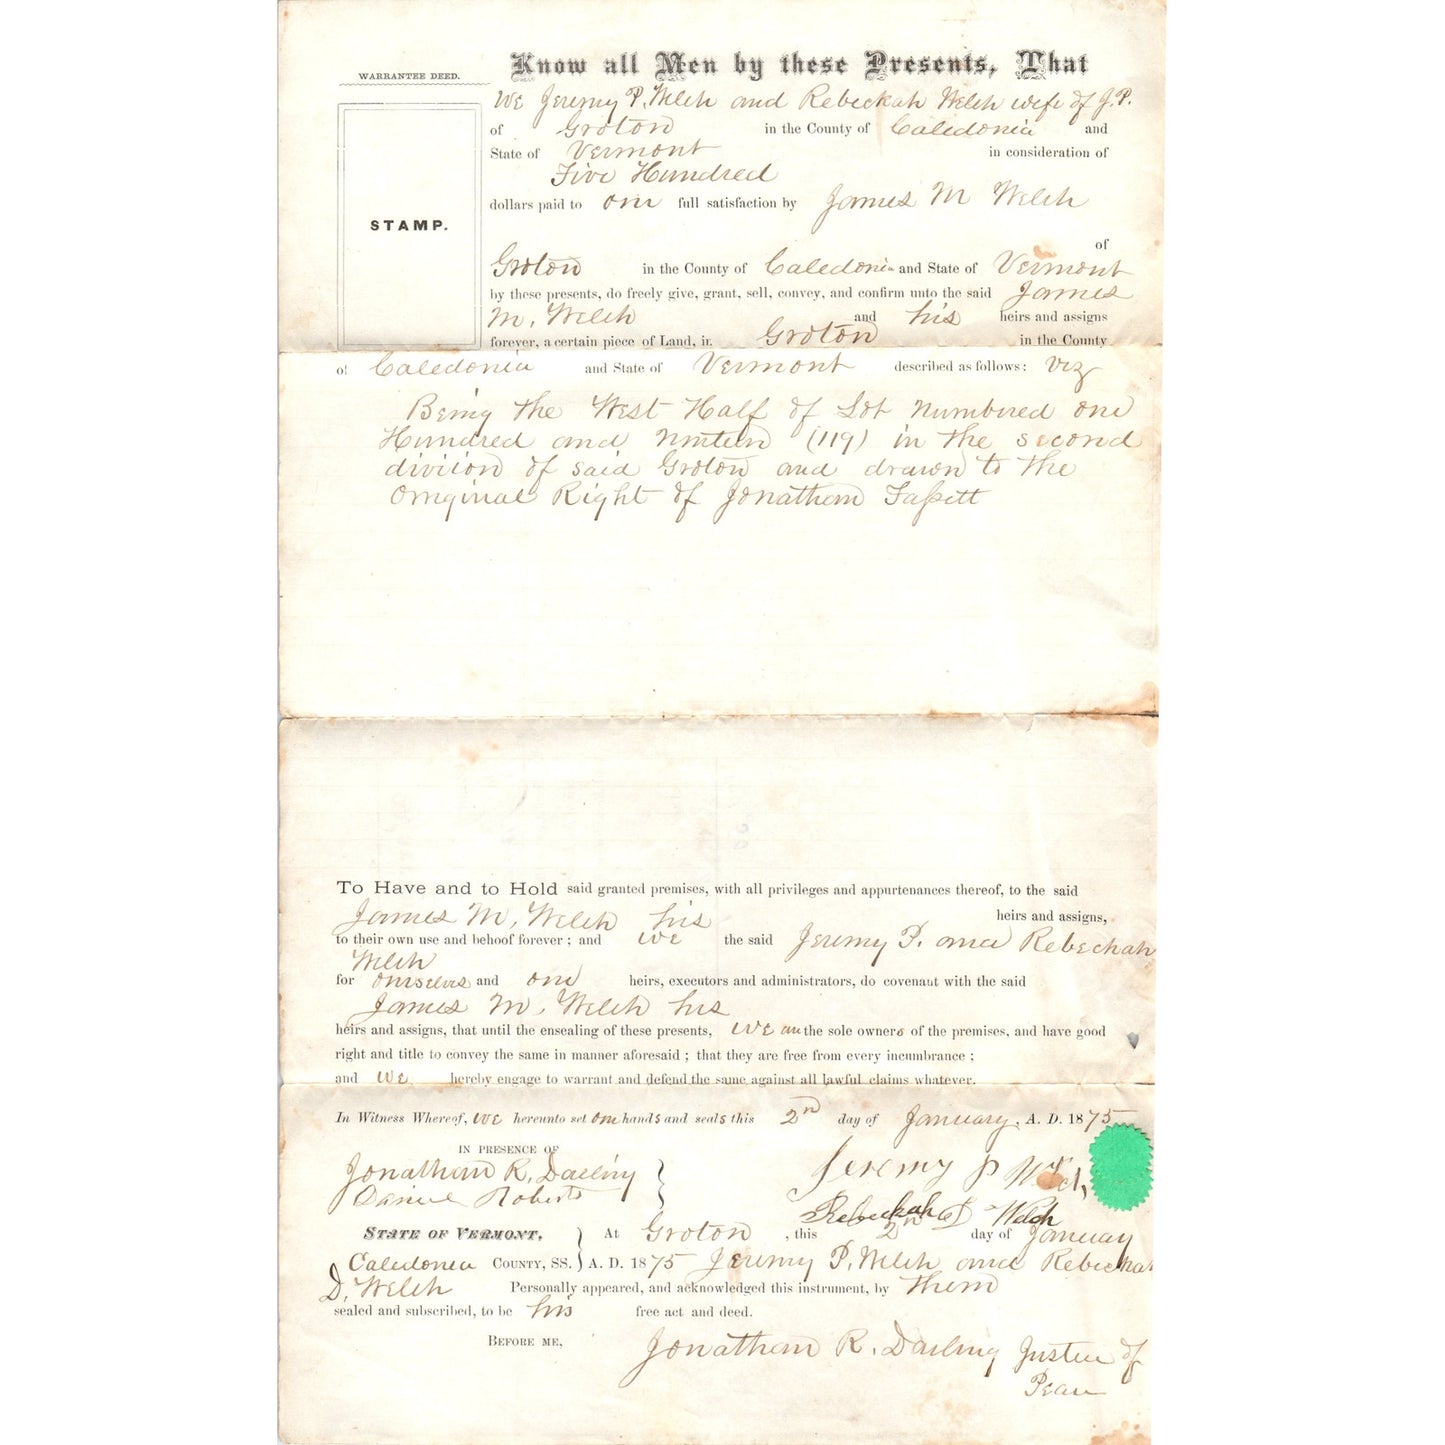 WARRANTEE DEED.
Know all Men by these Presents, That
We Jeremy P. Welch and Rebeckah Welch wife of J.P.
of Groton in the County of Caledonia and
State of Vermont in consideration of
Five Hundred
dollars paid to our full satisfaction by James M Welch
STAMP.
of
Groton in the County of Caledonia and State of Vermont
by these presents, do freely give, grant, sell, convey, and confirm unto the said James
M. Welch and his heirs and assigns
forever, a certain piece of Land, in Groton in the County
of Caledonia and State of Vermont described as follows: Viz
Being the West Half of Lot Numbered one
Hundred and Ninteen (119) in the second
division of said Groton and drawn to the
Original Right of Jonathan Fassett
To Have and to Hold said granted premises, with all privileges and appurtenances thereof, to the said
James M. Welch his heirs and assigns,
to their own use and behoof forever; and we the said Jeremy P. and Rebeckah
Welch
for ourselves and our heirs, executors and administrators, do covenant with the said
James M. Welch his
heirs and assigns, that until the ensealing of these presents, we are the sole owners of the premises, and have good
right and title to convey the same in manner aforesaid; that they are free from every incumbrance;
and we hereby engage to warrant and defend the same against all lawful claims whatever.
In Witness Whereof, we hereunto set our hands and seals this 2nd day of January, A. D. 1875
IN PRESENCE OF
Jonathan R. Darling Jeremy P Welch
Daniel Roberts Rebeckah D Welch
STATE OF VERMONT, At Groton, this 2nd day of January
Caledonia COUNTY, SS. A. D. 1875 Jeremy P. Welch and Rebeckah
D. Welch Personally appeared, and acknowledged this instrument, by them
sealed and subscribed, to be his free act and deed.
BEFORE ME, Jonathan R. Darling Justice of
Peace